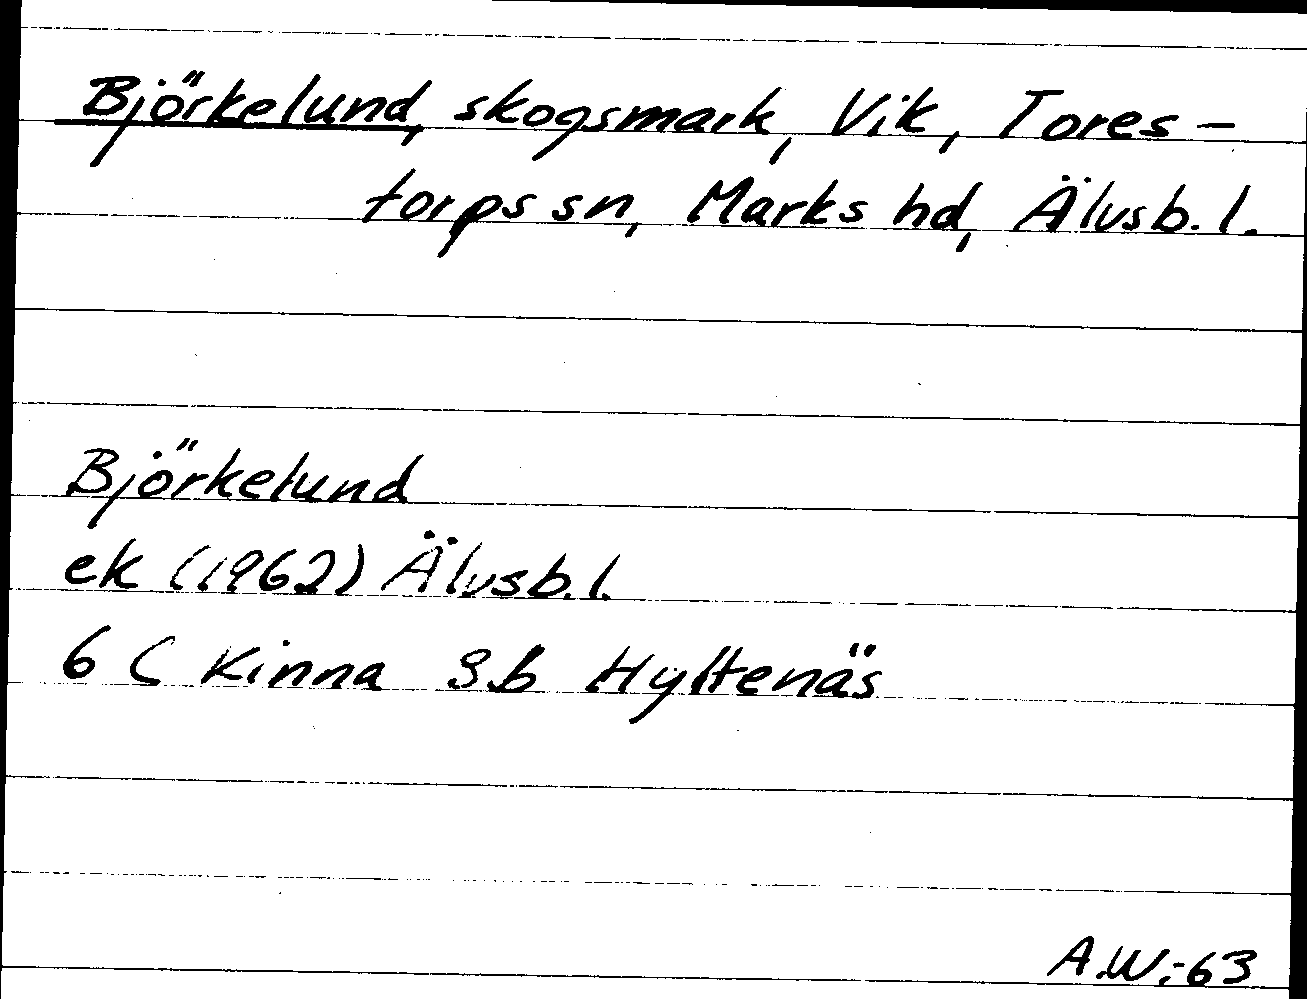 Björkelund, skogsmark, Vik, Tores-
torps sn, Marks hd, Älvsb. l.
Björkelund
ek (1962) Älvsb. l.
6 C Kinna 3b Hyltenäs
A.W.-63